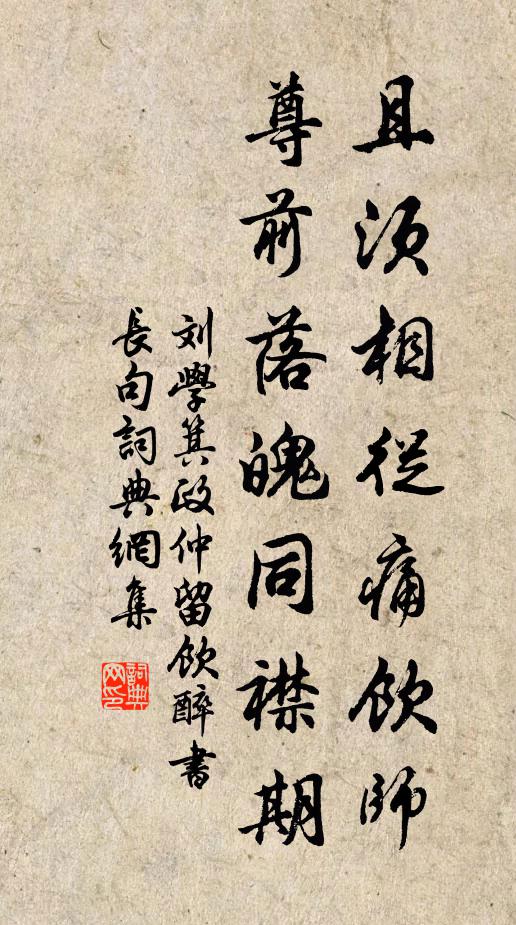 且須相從痛飲師
尊前落魄同襟期
刘學箕政仲留飲醉書
長句詞典網集
詞典網印